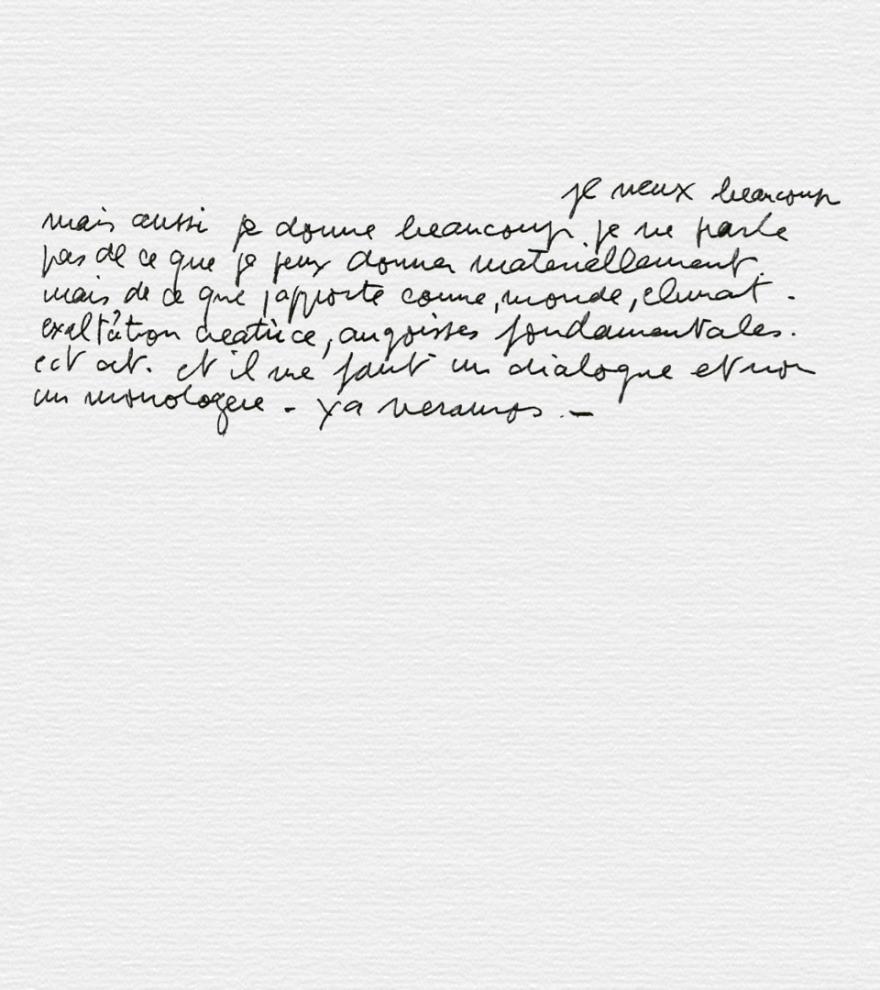 je veux beaucoup
mais aussi je donne beaucoup. je ne parle
pas de ce que je peux donner materiellement.
mais de ce que j'apporte comme, monde, climat.
exaltation creatrice, angoisses fondamentales.
ect ect. et il me faut un dialogue et non
un monologue - ya veramos . -